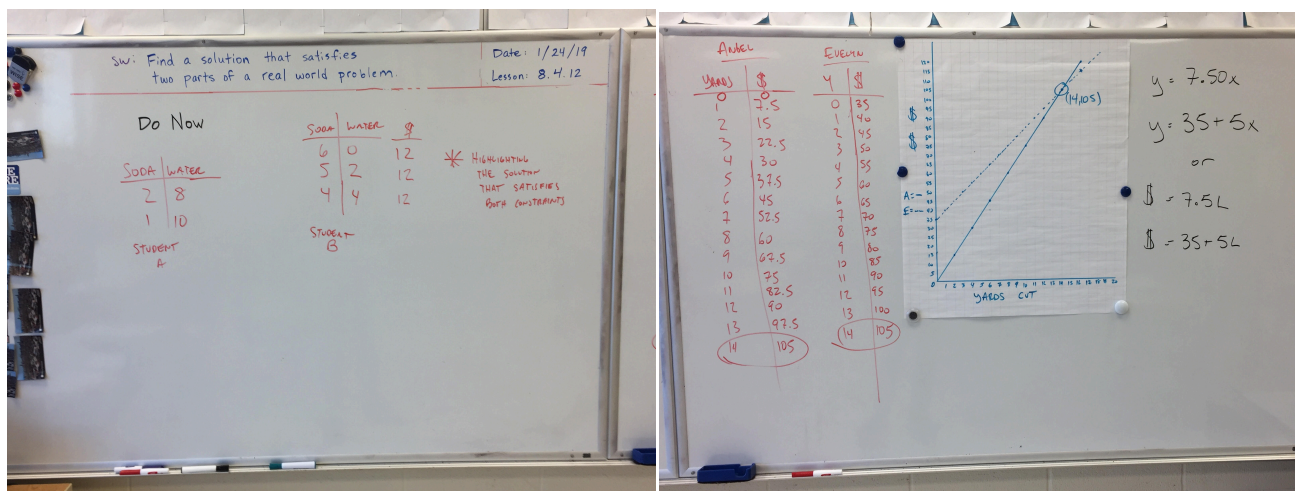 SW: Find a solution that satisfies
two parts of a real world problem.
Date: 1/24/19
Lesson: 8.4.12
Do Now
SODA WATER
2 8
1 10
STUDENT
A
SODA WATER $
6 0 12
5 2 12
4 4 12
STUDENT
B
* HIGHLIGHTING
THE SOLUTION
THAT SATISFIES
BOTH CONSTRAINTS
ANGEL
YARDS $
0 0
1 7.5
2 15
3 22.5
4 30
5 37.5
6 45
7 52.5
8 60
9 67.5
10 75
11 82.5
12 90
13 97.5
14 105
EVELYN
Y $
0 35
1 40
2 45
3 50
4 55
5 60
6 65
7 70
8 75
9 80
10 85
11 90
12 95
13 100
14 105
(14,105)
$
$
A=—
E=---
YARDS CUT
y = 7.50x
y = 35+5x
or
$ = 7.5L
$ = 35+5L